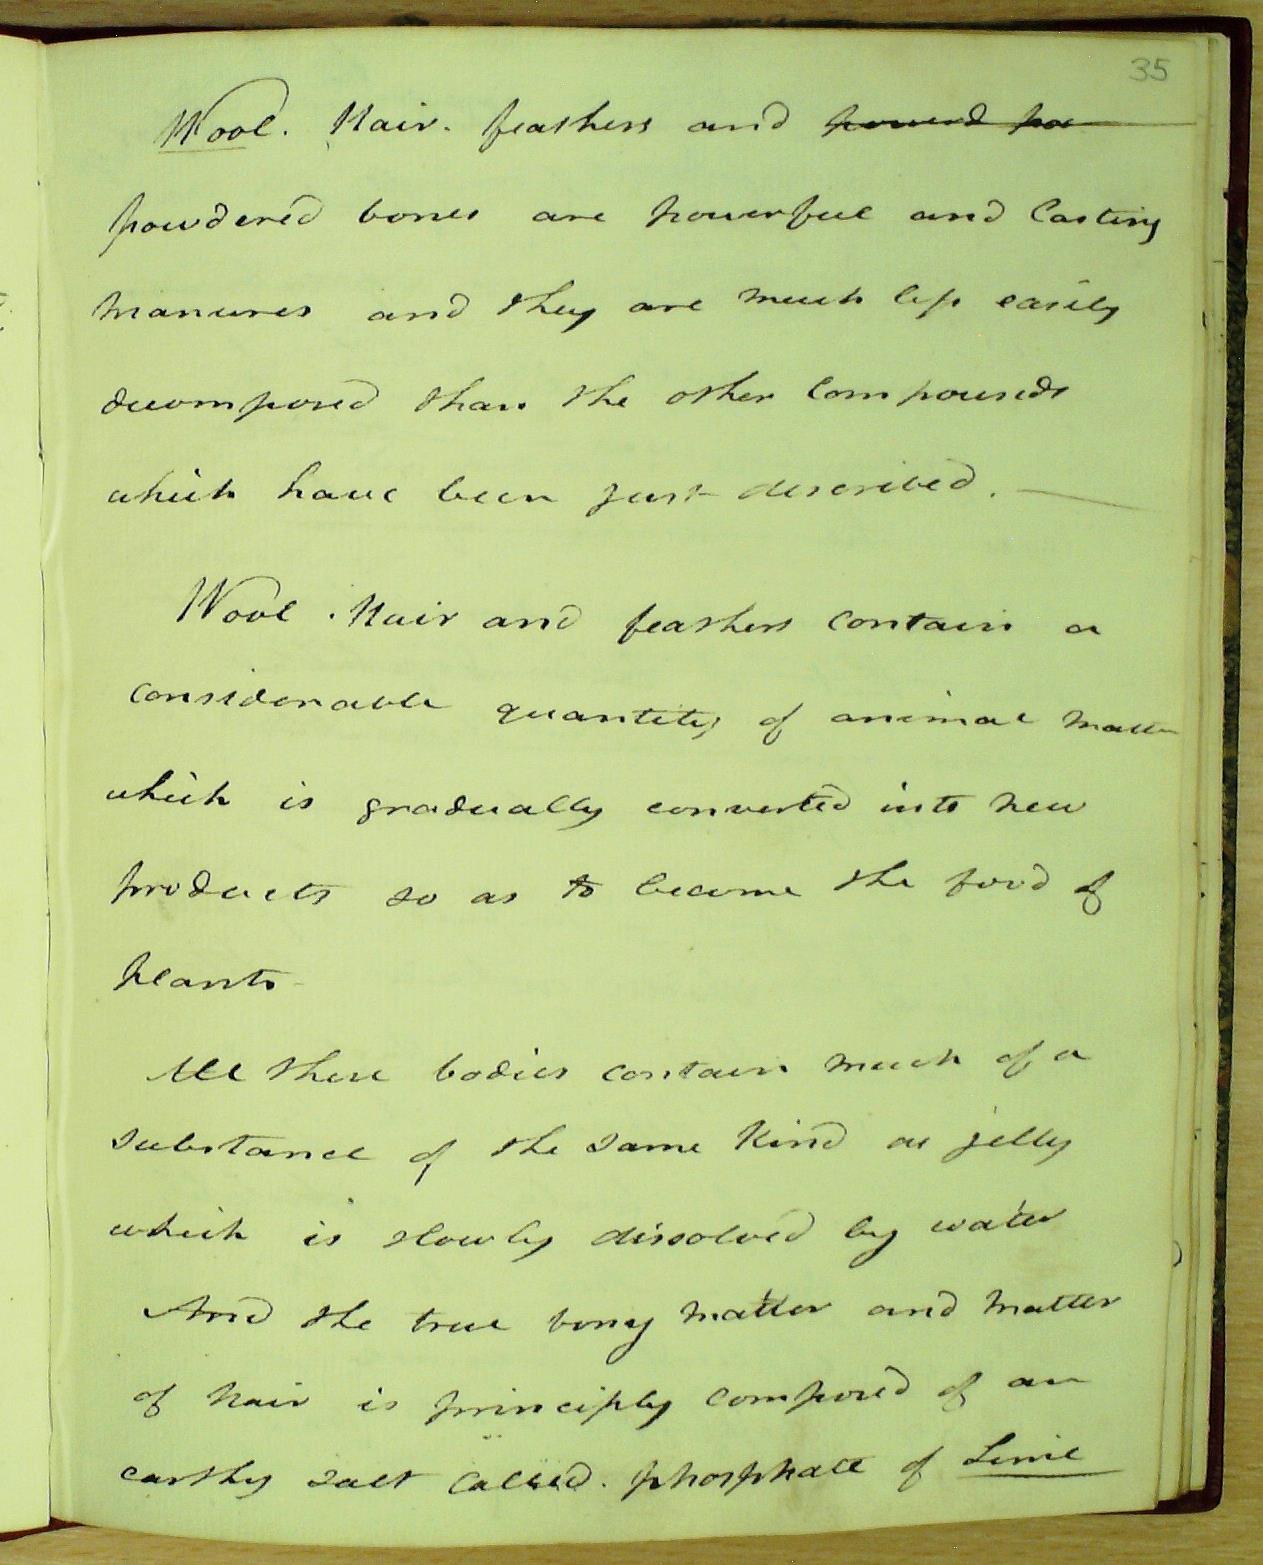 35
Wool. Hair. feathers and powerd po
powdered bones are powerful and lasting
manures and they are much less easily
decomposed than the other Compounds
which have been just described.
Wool. Hair and feathers contain a
considerable quantity of animal matter
which is gradually converted into new
products so as to become the food of
plants
All these bodies contain much of a
substance of the same kind as jelly
which is slowly dissolved by water
And the true bony matter and matter
of hair is principly composed of an
earthy salt called. phosphate of Lime